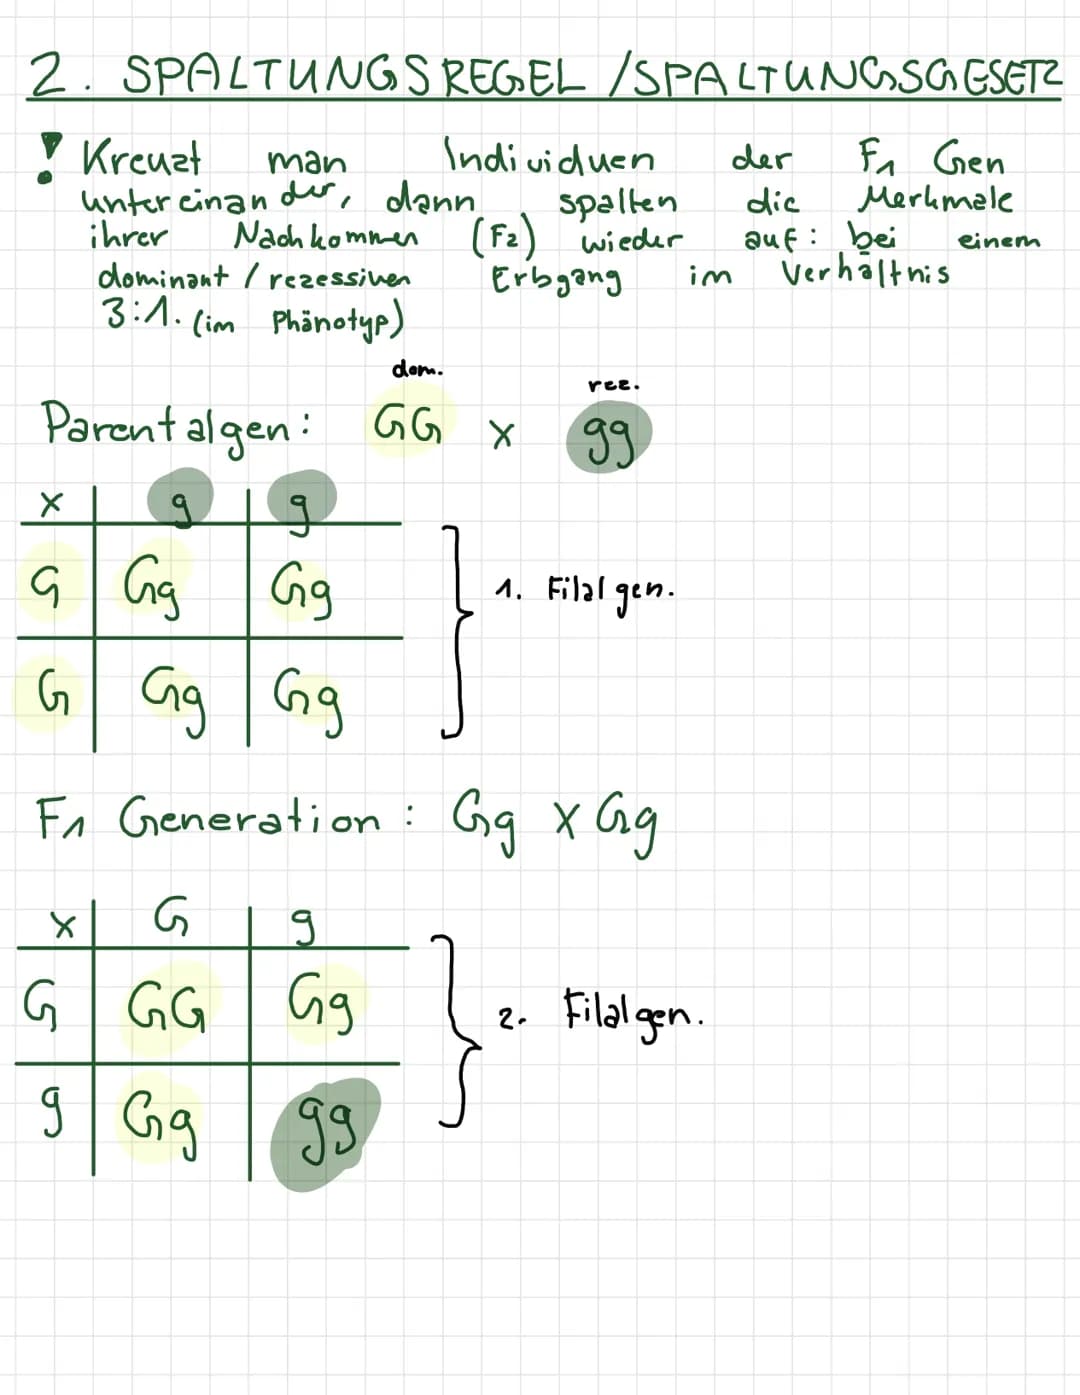 2. SPALTUNGSREGEL /SPALTUNGSGESETZ
! Kreuzt man Individuen der F1 Gen
untereinander, dann spalten die Merkmale
ihrer Nachkommen (F2) wieder auf: bei einem
dominant / rezessiven Erbgang im Verhältnis
3:1. (im Phänotyp)
dom. rez.
Parentalgen: GG x gg
x g g
G Gg Gg
1. Filialgen.
G Gg Gg
F1 Generation: Gg x Gg
x G g
G GG Gg
2. Filialgen.
g Gg gg